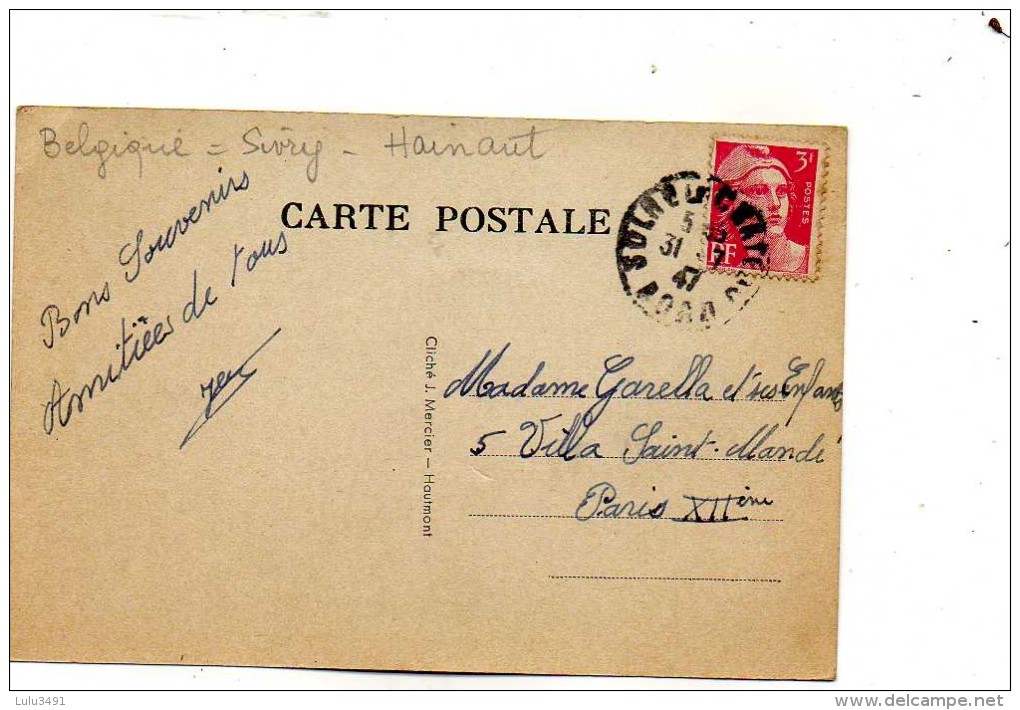 Belgique = Sivry - Hainaut
CARTE POSTALE
Bons Souvenirs
Amitiées de tous
3F
POSTES
RF
SOLRE LE CHATEAU
31 - 7
47
NORD
Cliché J. Mercier — Hautmont
Madame Garella et ses Enfants
5 Villa Saint-Mandé
Paris XIIème
Lulu3491
www.delcampe.net